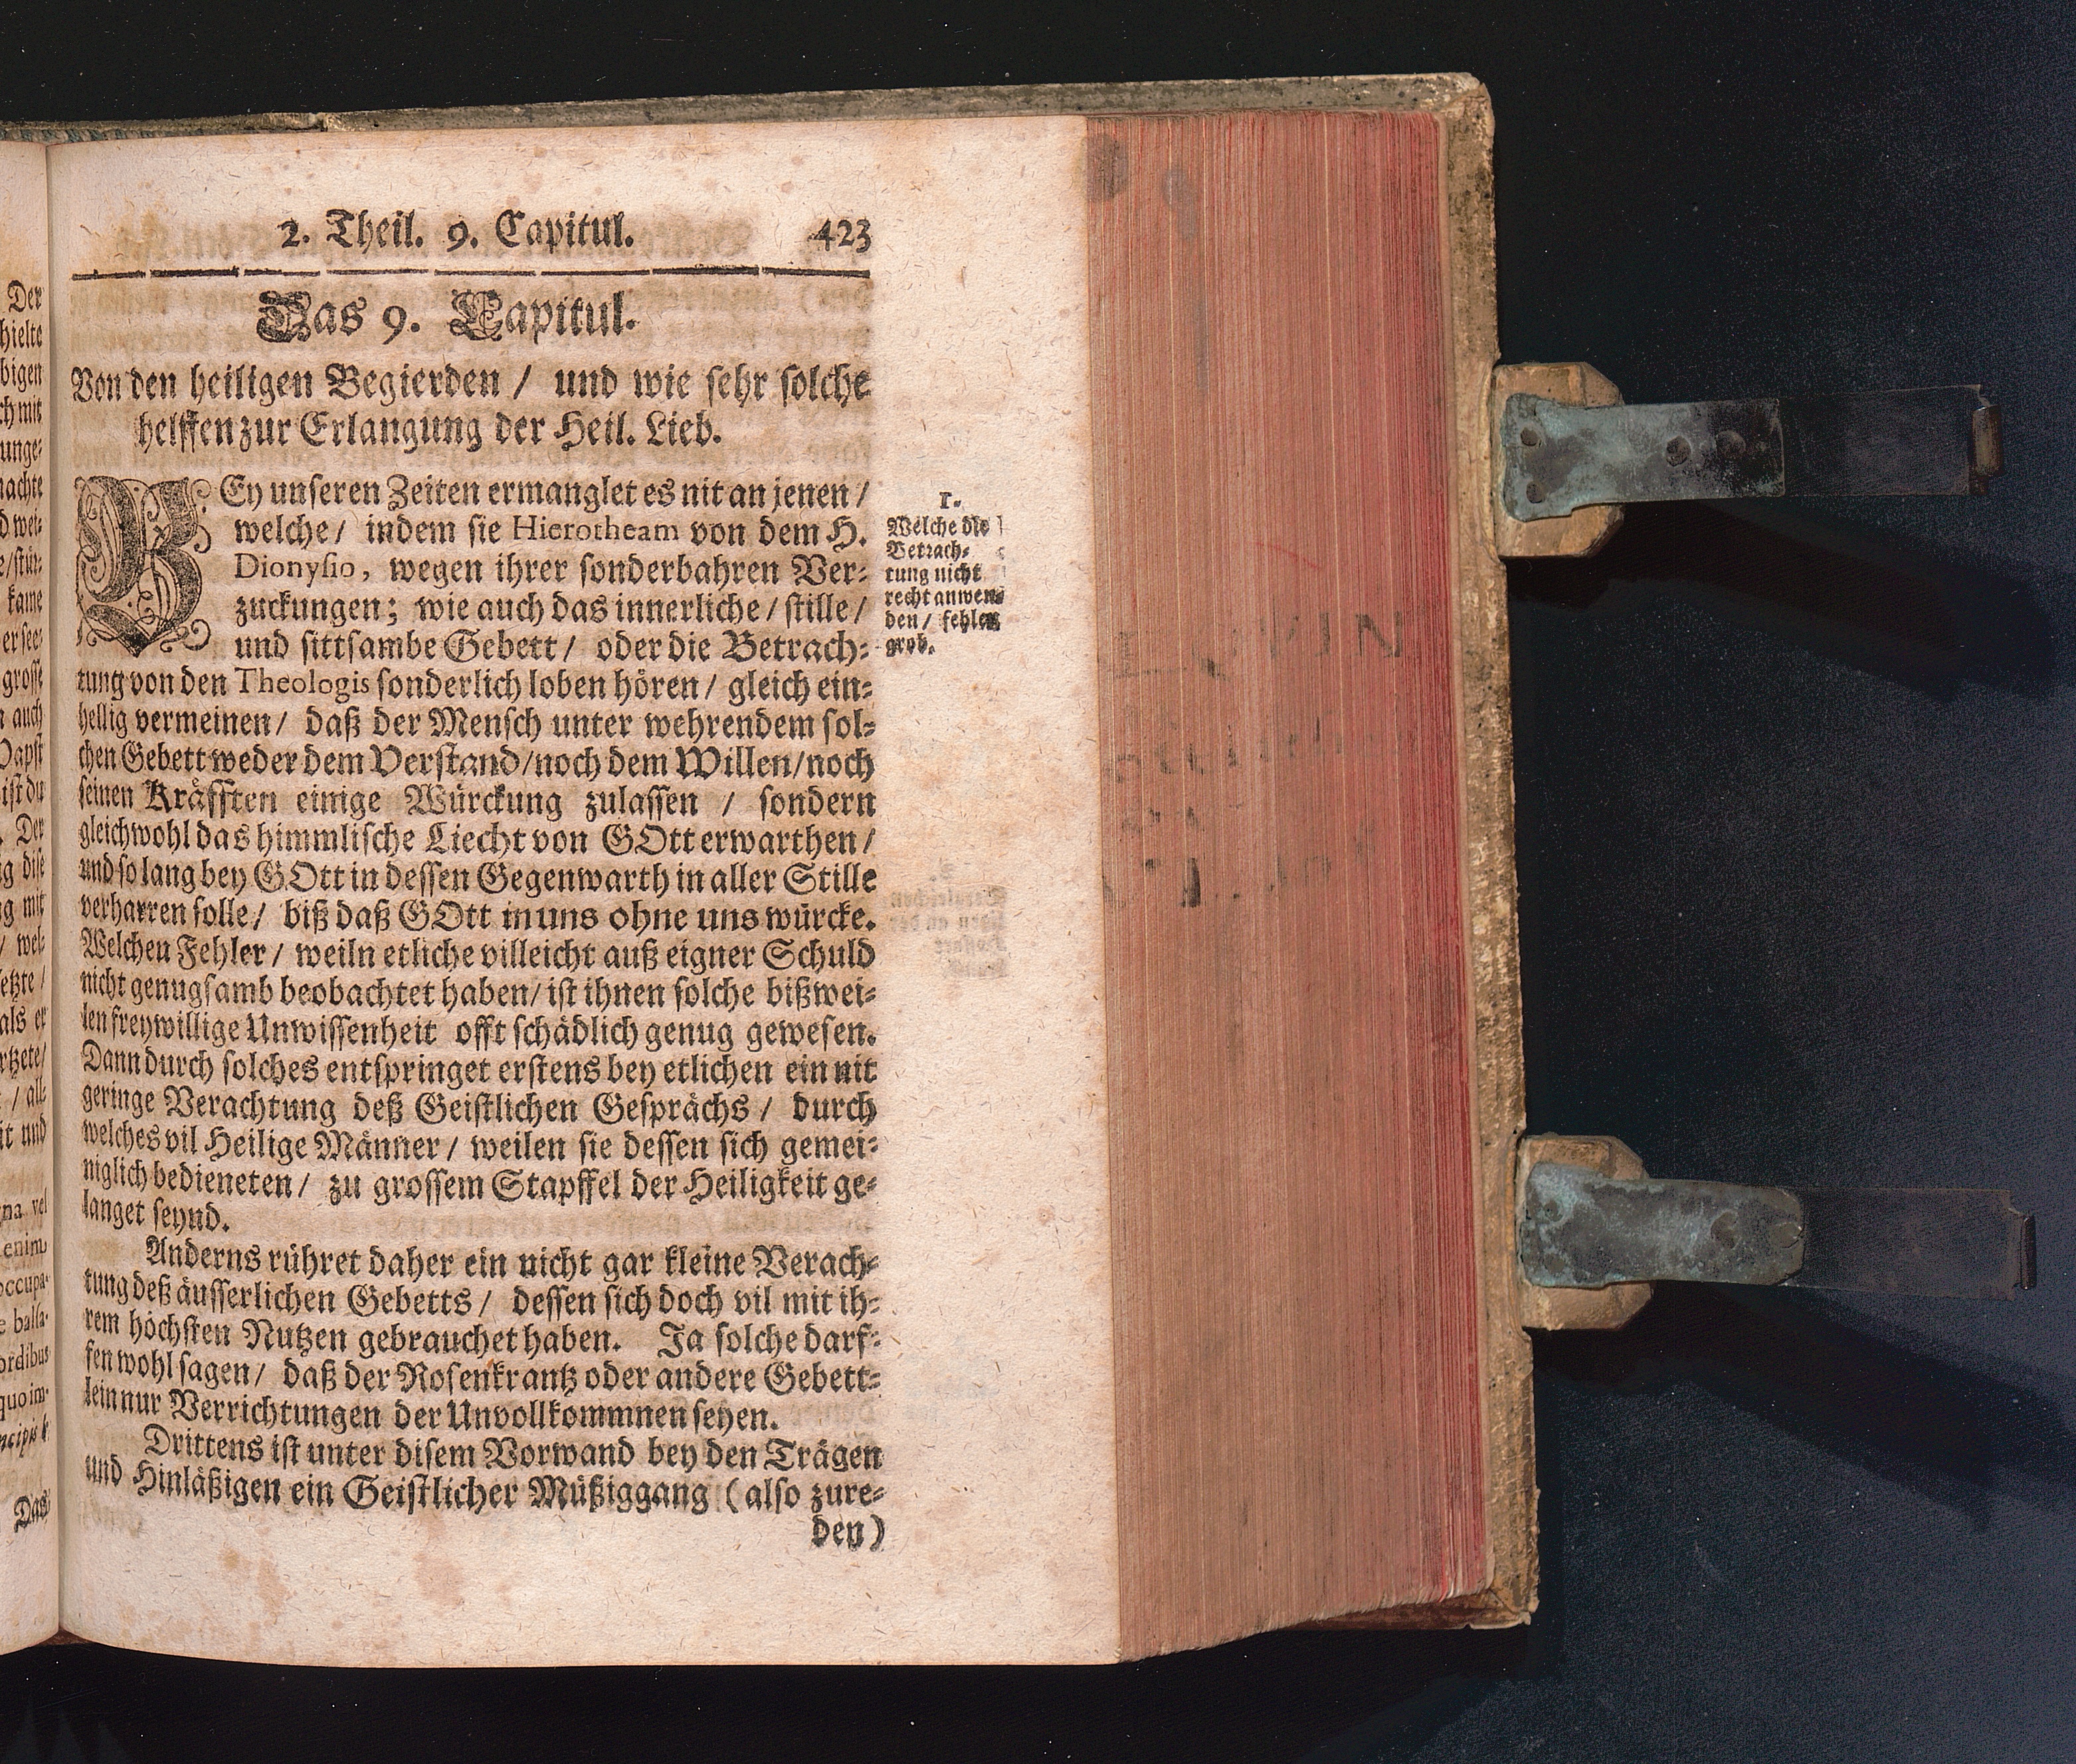 Der
hielte
bigen
ch mit
unge⸗
machte
d wei⸗
kame
grosse
n auch
Papst
ist du
Der
ig dise
ng mit
/ wel⸗
letzte /
als er
/ alle
it und
na vel
enim
occupa-
e balsa-
ordibus
quo im-
Das
2. Theil. 9. Capitul. 423
Das 9. Capitul.
Von den heiligen Begierden / und wie sehr solche
helffen zur Erlangung der Heil. Lieb.
BEy unseren Zeiten ermanglet es nit an jenen /
welche / indem sie Hierotheam von dem H.
Dionysio, wegen ihrer sonderbahren Ver⸗
zuckungen; wie auch das innerliche / stille /
und sittsambe Gebett / oder die Betrach⸗
tung von den Theologis sonderlich loben hören / gleich ein⸗
hellig vermeinen / daß der Mensch unter wehrendem sol⸗
chen Gebett weder dem Verstand / noch dem Willen / noch
seinen Kräfften einige Würckung zulassen / sondern
gleichwohl das himmlische Liecht von GOtt erwarthen /
und so lang bey GOtt in dessen Gegenwarth in aller Stille
verharren solle / biß daß GOtt in uns ohne uns würcke.
Welchen Fehler / weiln etliche villeicht auß eigner Schuld
nicht genugsamb beobachtet haben / ist ihnen solche bißwei⸗
len freywillige Unwissenheit offt schädlich genug gewesen.
Dann durch solches entspringet erstens bey etlichen ein nit
geringe Verachtung deß Geistlichen Gesprächs / durch
welches vil Heilige Männer / weilen sie dessen sich gemei⸗
niglich bedieneten / zu grossem Stapffel der Heiligkeit ge⸗
langet seynd.
Anderns rühret daher ein nicht gar kleine Verach⸗
tung deß äusserlichen Gebetts / dessen sich doch vil mit ih⸗
rem höchsten Nutzen gebrauchet haben. Ja solche darf⸗
fen wohl sagen / daß der Rosenkrantz oder andere Gebett⸗
lein nur Verrichtungen der Unvollkommnen seyen.
Drittens ist unter disem Vorwand bey den Trägen
und Hinläßigen ein Geistlicher Müßiggang (also zure⸗
den)
1.
Welche die
Betrach⸗
tung nicht
recht anwen⸗
den / fehlen
grob.